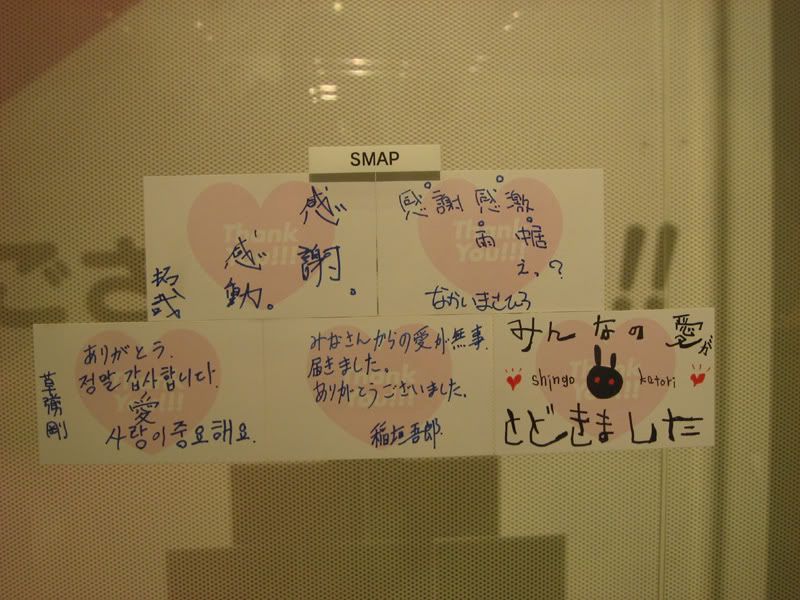 SMAP
感謝。
感動。
拓哉
感謝感激
雨
え。?
なかいまさひろ
Thank
You!!!
!!
ありがとう.
정말 감사합니다.
愛
사랑이 중요해요.
草彅剛
みなさんからの愛が無事
届きました。
ありがとうございました。
稲垣吾郎
みんなの愛が
shingo katori
とどきました